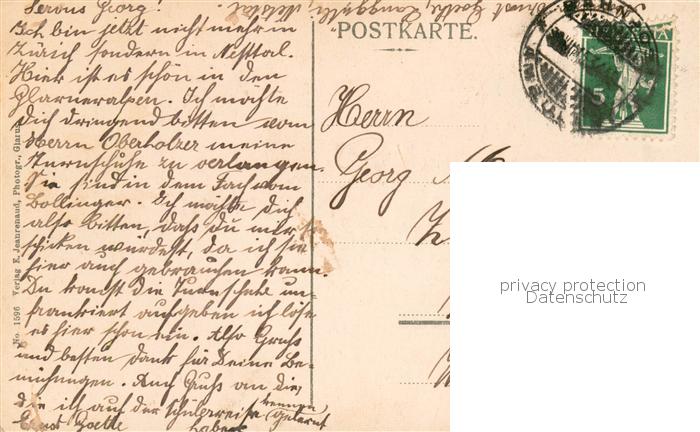 Servus Georg!
Ich bin jetzt nicht mehr in
Zürich sondern in Nesttal.
Hier ist es schön in den
Glarneralpen. Ich möchte
Dich dringend bitten vom
Herrn Oberholzer meine
Turnschuhe zu verlangen.
Sie sind in dem Fach vom
Bollinger. Ich möchte Dich
also bitten, dass du mir sie
schicken würdest, da ich sie
hier auch gebrauchen kann.
Du kannst die Turnschuhe un-
frankiert aufgeben ich löse
es hier schon ein. Also Gruss
und besten Dank für Deine Be-
mühungen. Auch Gruss an die,
die ich auf der Schülerreise kennen
Ernst Goette gelernt
habe
Ernst Goette,
No. 1596 Verlag E. Jeanrenaud, Photogr., Glarus
POSTKARTE.
Herrn
Georg
5
privacy protection
Datenschutz